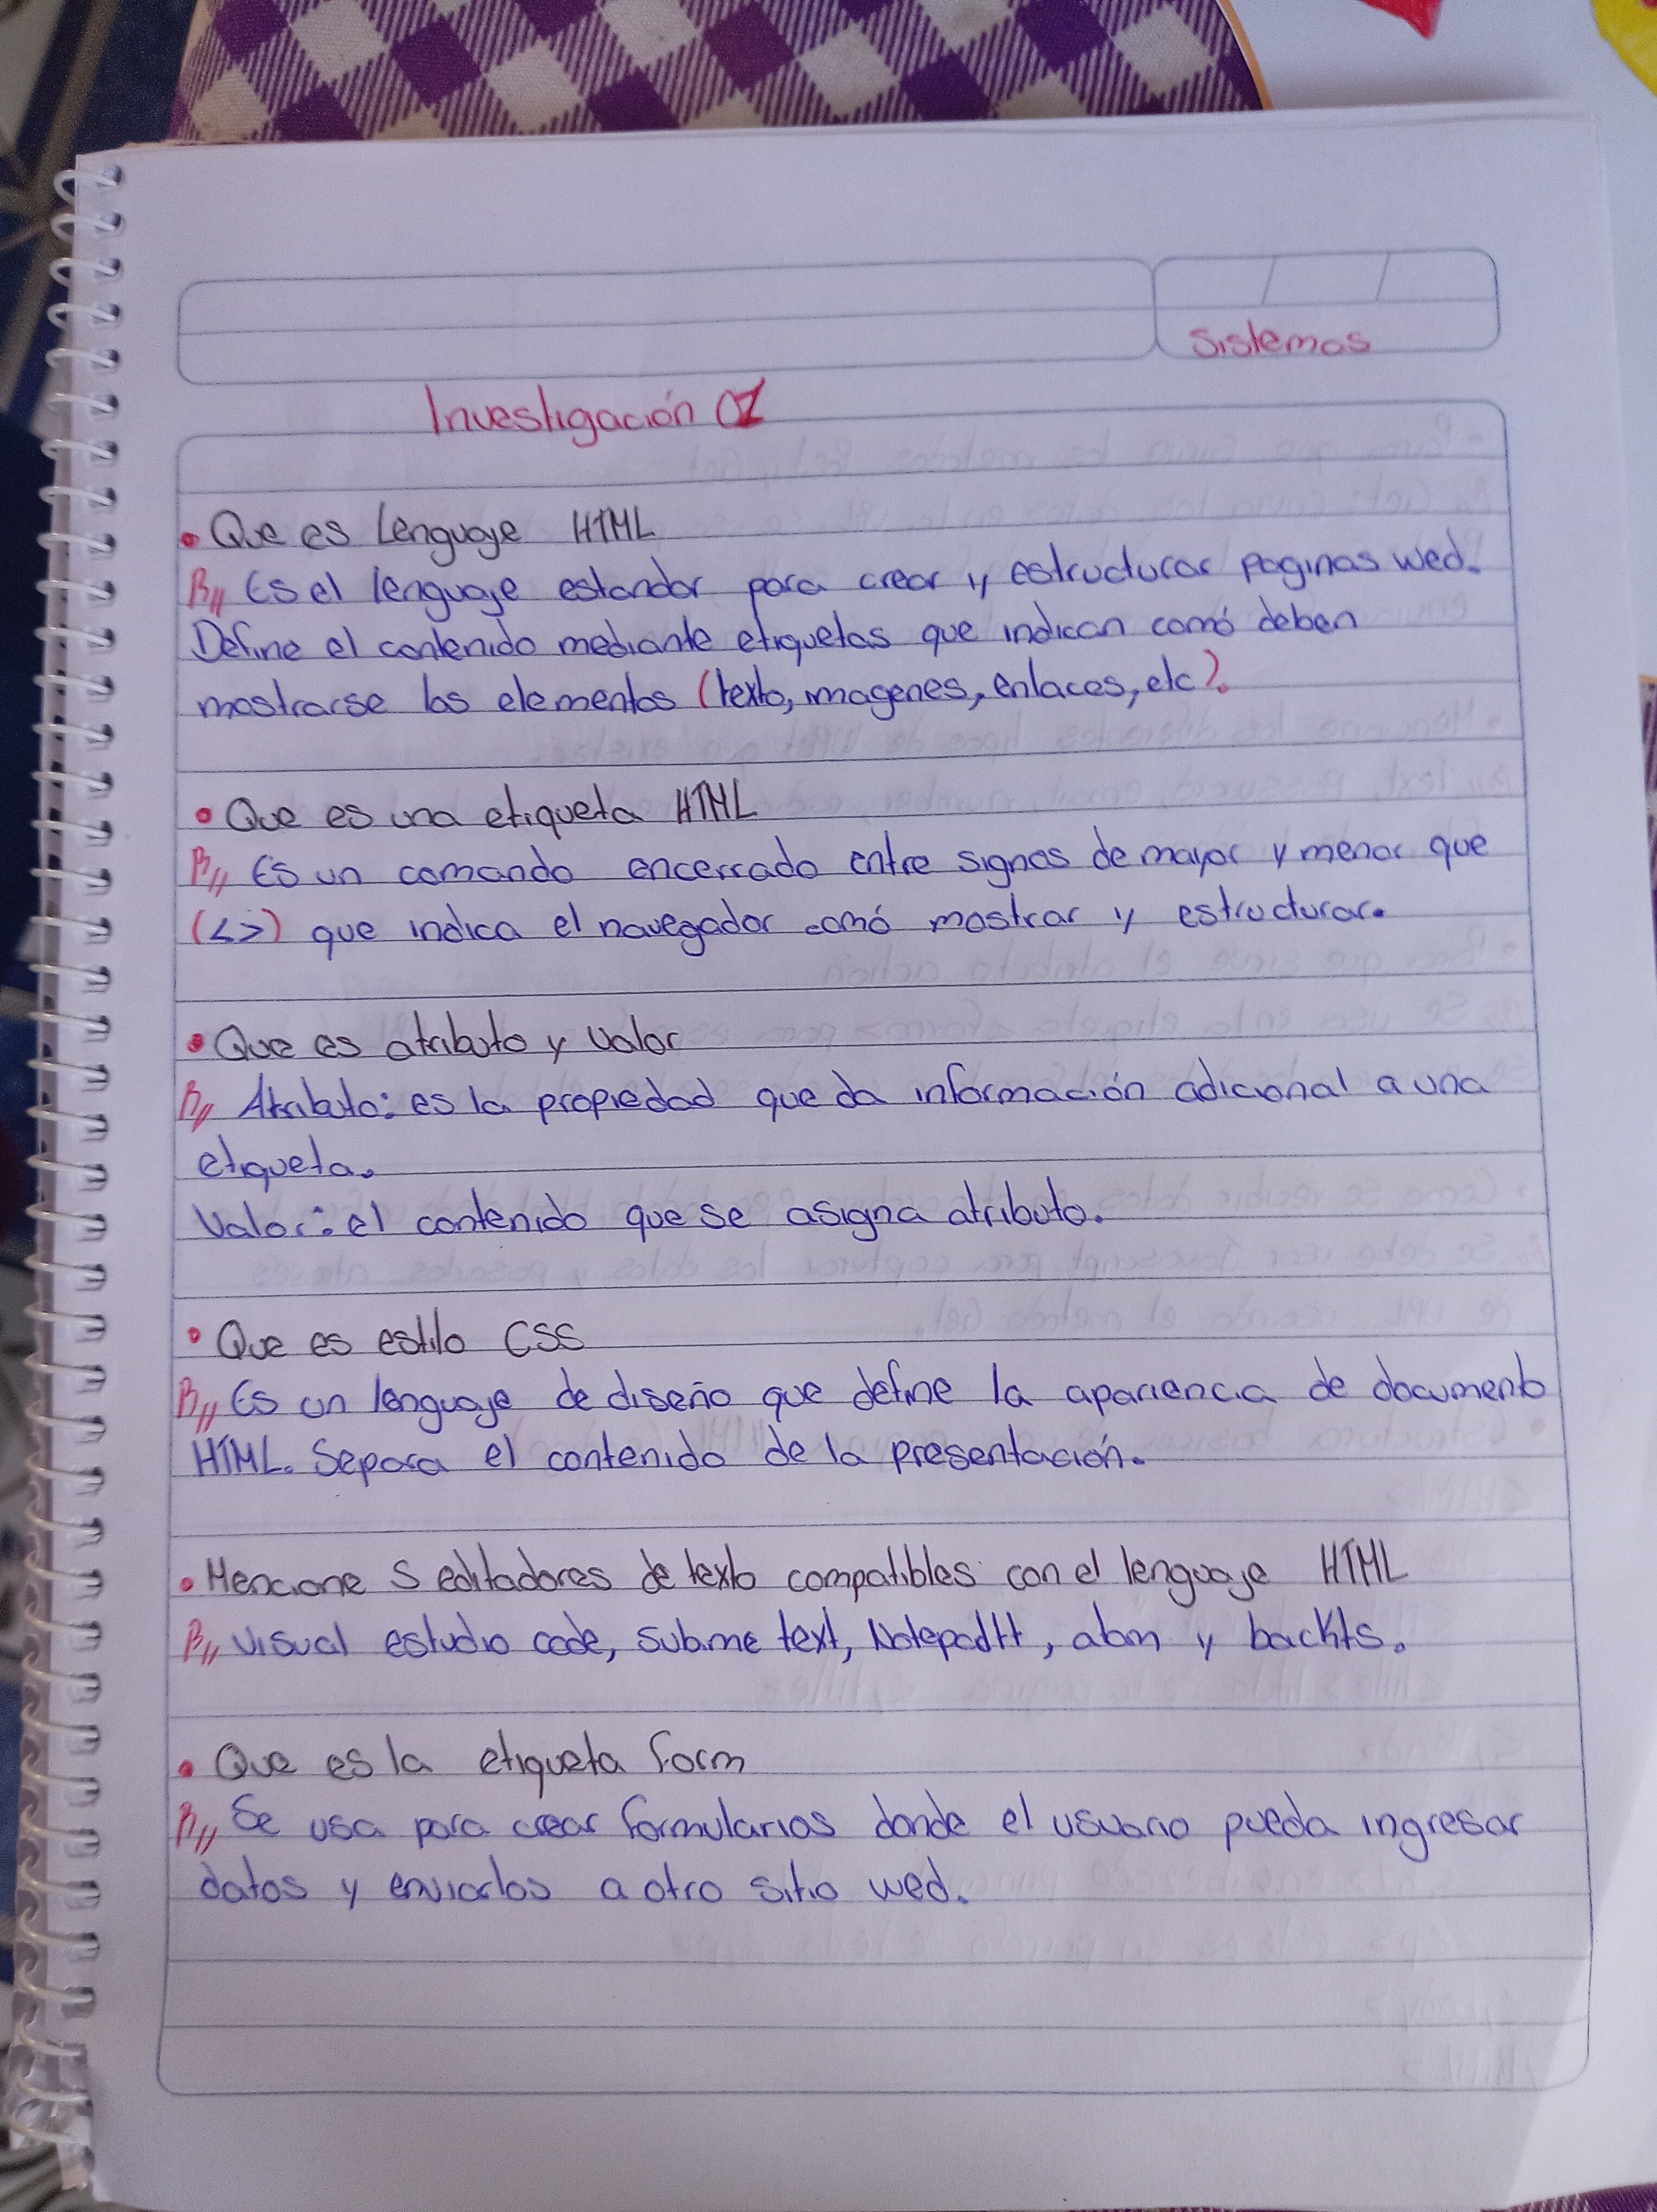 Sistemas
Investigación 01
• Que es Lenguaje HTML
R// Es el lenguaje estandar para crear y estructurar paginas wed.
Define el contenido mediante etiquetas que indican comó deben
mostrarse los elementos (texto, imagenes, enlaces, etc).
• Que es una etiqueta HTML
R// Es un comando encerrado entre signos de mayor y menor que
(<>) que indica el navegador comó mostrar y estructurar.
• Que es atributo y valor
R// Atributo: es la propiedad que da información adicional a una
etiqueta.
Valor: el contenido que se asigna atributo.
• Que es estilo CSS
R// Es un lenguaje de diseño que define la apariencia de documento
HTML. Separa el contenido de la presentación.
• Mencione 5 editadores de texto compatibles con el lenguaje HTML
R// Visual estudio code, sublime text, Notepad++, atom y
• Que es la etiqueta form
R// Se usa para crear formularios donde el usuario pueda ingresar
datos y enviarlos a otro sitio wed.